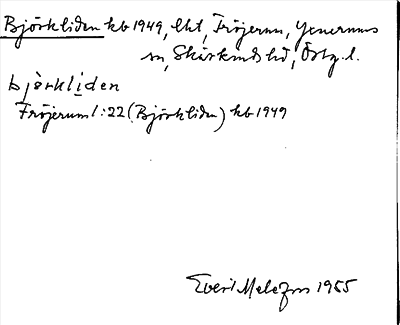 Björkliden kb 1949, lht, Fröjerum, Yxnerums
sn, Skärkinds hd, Östg. l.
björkliden
Fröjerum 1:22 (Björkliden) kb 1949
1955